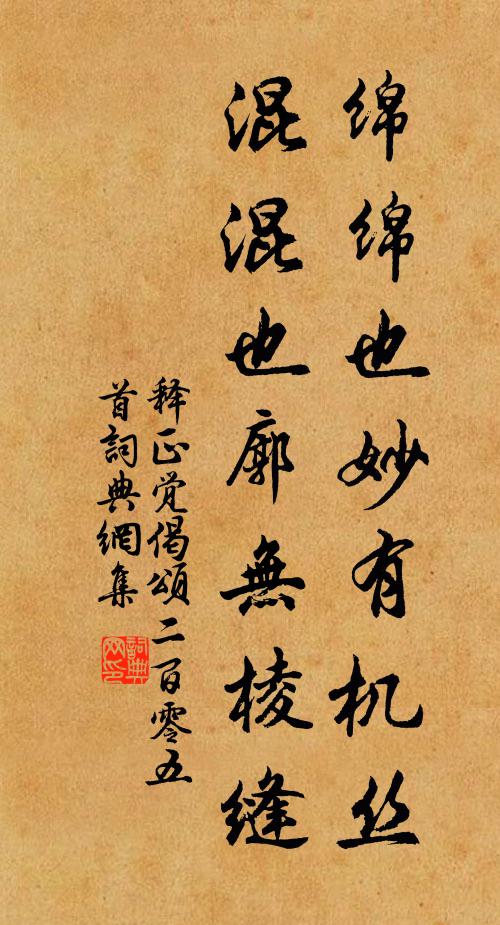 绵绵也妙有机丝
混混也廓無棱缝
释正觉偈頌二百零五
首詞典網集
詞典
网印